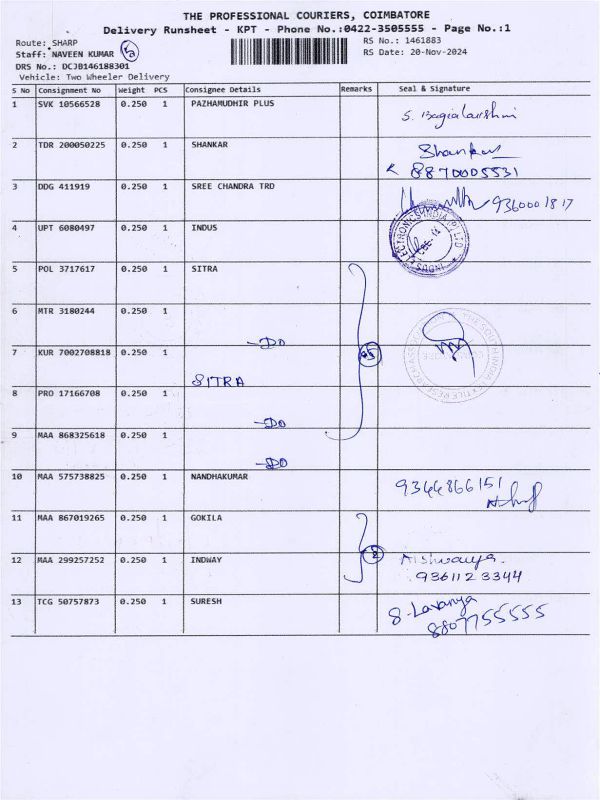 THE PROFESSIONAL COURIERS, COIMBATORE
Delivery Runsheet - KPT - Phone No.:0422-3505555 - Page No.:1
Route: SHARP
RS No.: 1461883
Staff: NAVEEN KUMAR
RS Date: 20-Nov-2024
DRS No.: DCJB146188301
Vehicle: Two Wheeler Delivery
S No Consignment No Weight PCS Consignee Details Remarks Seal & Signature
1 SVK 10566528 0.250 1 PAZHAMUDHIR PLUS
S. Bagialakshmi
2 TDR 200050225 0.250 1 SHANKAR Shankar
8870005531
3 DDG 411919 0.250 1 SREE CHANDRA TRD
9360001817
4 UPT 6080497 0.250 1 INDUS
5 POL 3717617 0.250 1 SITRA
6 MTR 3180244 0.250 1
-DO
7 KUR 7002708818 0.250 1
SITRA
8 PRO 17166708 0.250 1
-DO
9 MAA 868325618 0.250 1
-DO
10 MAA 575738825 0.250 1 NANDHAKUMAR 9344866151
11 MAA 867019265 0.250 1 GOKILA
2
12 MAA 299257252 0.250 1 INDWAY Aishwarya.
9361123344
13 TCG 50757873 0.250 1 SURESH S. Lavanya
8807755555